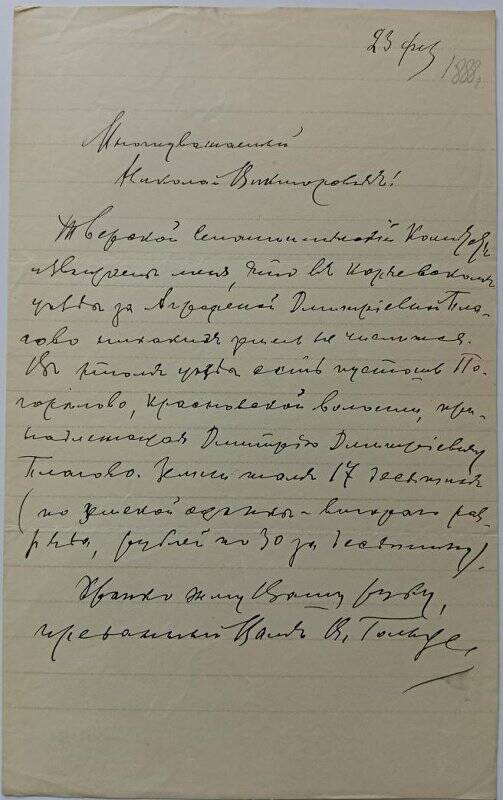 23 фев
1888.
Многоуважаемый
Николай Викторович!
Тверской Статистический Комитет
извещает меня, что въ Корчевскомъ
уѣздѣ за Аграфеной Дмитріевной Пла-
гово никакихъ земель не числится.
Въ этомъ уѣздѣ есть пустошь По-
горѣлово, Красновской волости, при-
надлежащая Дмитрію Дмитріевичу
Плагово. Земли тамъ 17 десятинъ
(по земской оцѣнкѣ – второго раз-
ряда, рублей по 30 за десятину).
Крѣпко жму Вашу руку,
преданный Вамъ В. Гольцевъ